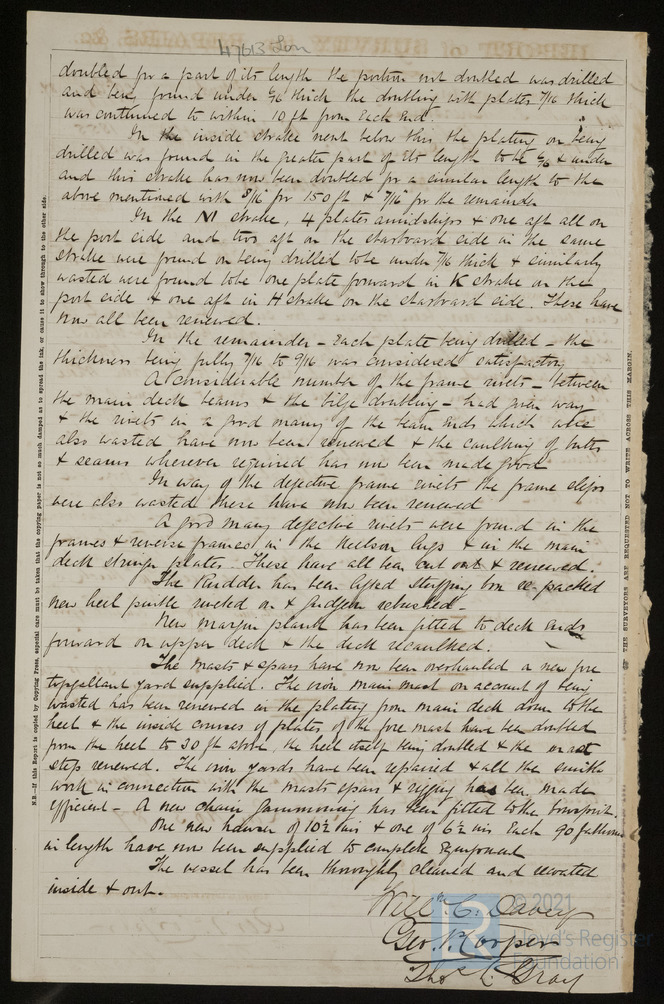 47613 Lon
doubled for a part of its length the portion not doubled was drilled
and being found under 6/16 thick the doubling with plates 7/16 thick
was continued to within 10 ft from each end.
In the inside strake next below this the plating on being
drilled was found in the greater part of its length to be 6/16 & under
and this strake has now been doubled for a similar length to the
above mentioned with 8/16 for 150 ft & 7/16 for the remainder
In the strake, 4 plates amidships & one aft all on
the port side and two aft on the starboard side in the same
strake were found on being drilled to be under 7/16 thick & similarly
wasted were found to be one plate forward in K strake on the
port side & one aft in H strake on the starboard side. These have
now all been renewed.
In the remainder - each plate being drilled - the
thickness being fully 7/16 to 9/16 was considered satisfactory
A considerable number of the frame rivets - between
the main deck beams & the bilge doubling - had given way
& the rivets in a good many of the beam ends which were
also wasted have now been renewed & the caulking of butts
& seams wherever required has now been made good
In way of the defective frame rivets the frame slips
were also wasted these have now been renewed
A good many defective rivets were found in the
frames & reverse frames in the Keelson lugs & in the main
deck stringer plates. These have all been cut out & renewed.
The Rudder has been lifted stuffing box re-packed
new heel pintle riveted on & gudgeon rebushed -
New margin plank has been fitted to deck ends
forward on upper deck & the deck recaulked.
The masts & spars have now been overhauled a new fore
topgallant yard supplied. The iron main mast on account of being
wasted has been renewed in the plating from main deck down to the
heel & the inside courses of plates of the fore mast have been doubled
from the heel to 30 ft above, the heel itself being doubled & the mast
step renewed. The iron yards have been repaired & all the smith
work in connection with the masts spars & rigging has been made
efficient - A new chain gammoning has been fitted to the bowsprit.
One new hawser of 10½ ins & one of 6½ ins each 90 fathoms
in length have now been supplied to complete Equipment
The vessel has been thoroughly cleaned and coated
inside & out.
Willm. C. Davey
Geo. Cooper
Thos. Gray
N.B.—If this Report is copied by Copying Press, especial care must be taken that the copying paper is not so much damped as to spread the ink, or cause it to show through to the other side.
THE SURVEYORS ARE REQUESTED NOT TO WRITE ACROSS THIS MARGIN.
© 2021
Lloyd's Register
Foundation